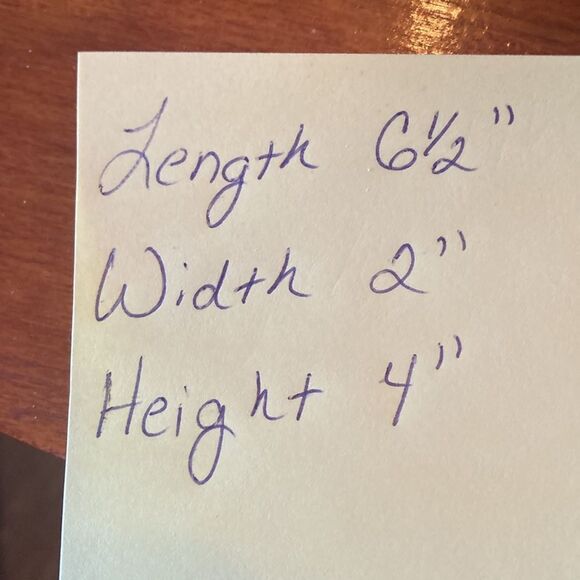 Length 6½"
Width 2"
Height 4"